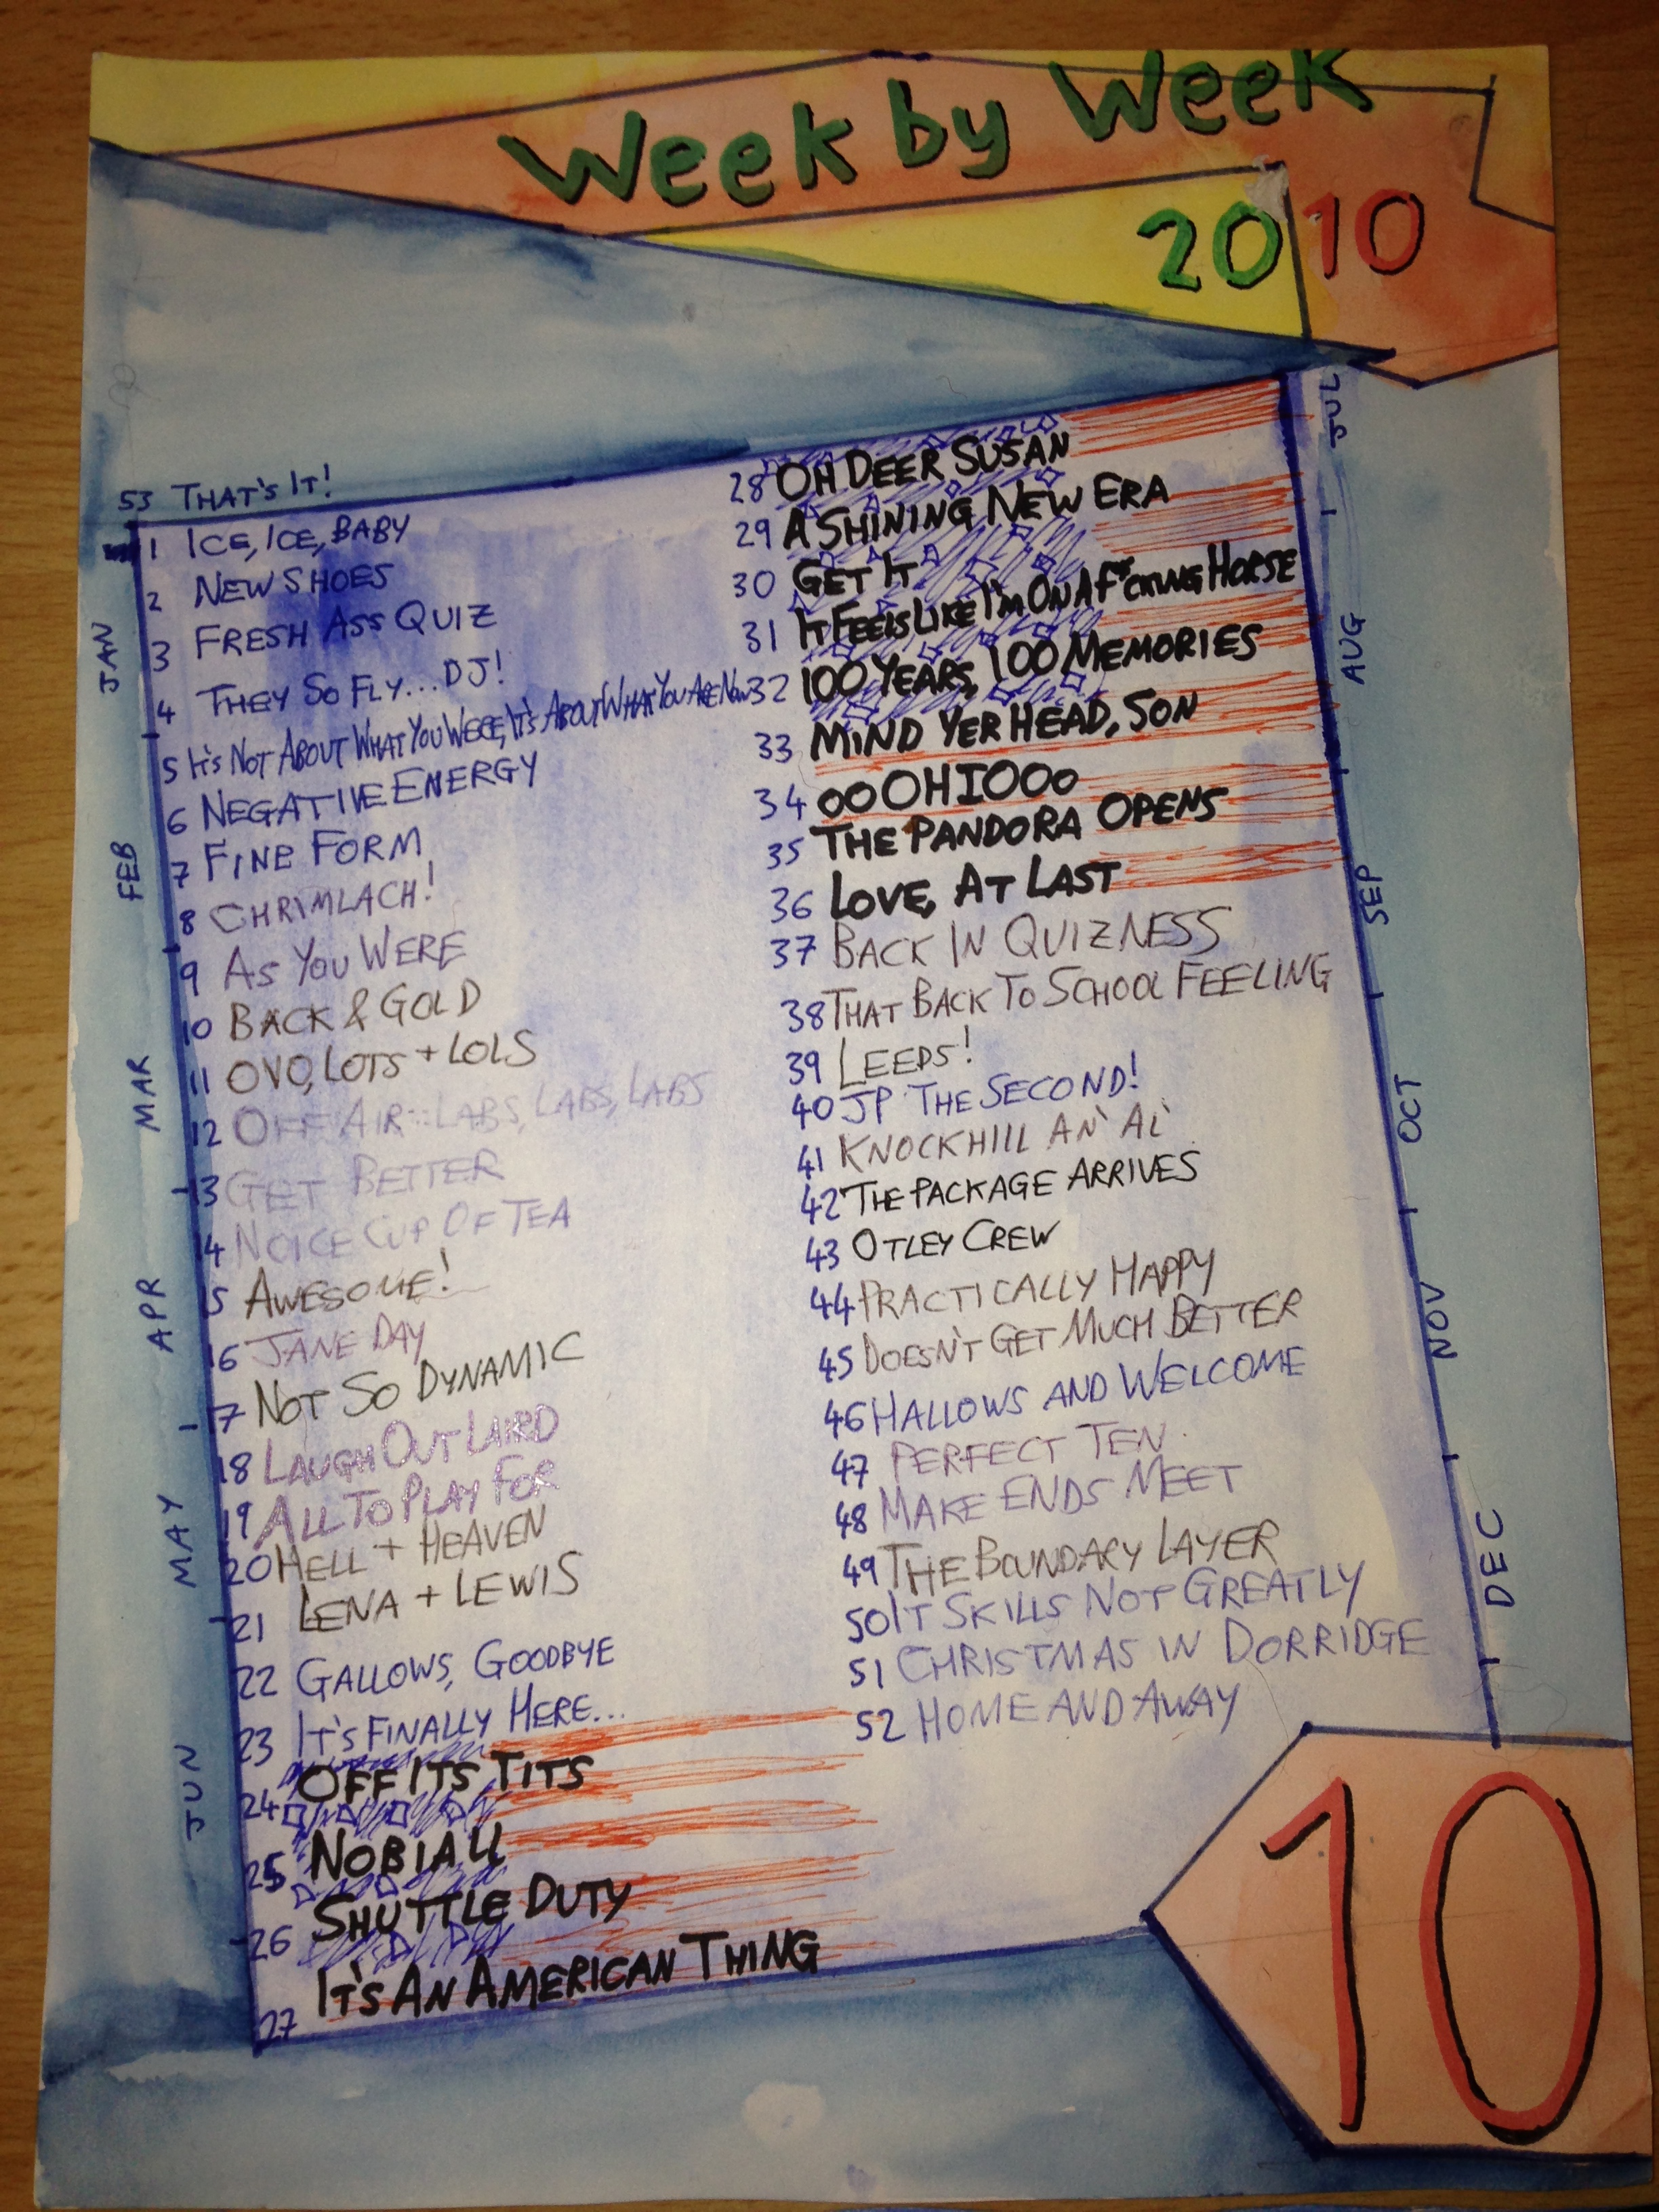 Week by Week
2010
53 THAT'S IT!
1 ICE, ICE, BABY
2 NEW SHOES
3 FRESH ASS QUIZ
4 THEY SO FLY... DJ!
5 IT'S NOT ABOUT WHAT YOU WERE, IT'S ABOUT WHAT YOU ARE NOW
6 NEGATIVE ENERGY
7 FINE FORM
8 CHRIMLACH!
9 AS YOU WERE
10 BACK & GOLD
11 OVO, LOTS + LOLS
12 OFF AIR: LABS, LABS, LABS
13 GET BETTER
14 NOICE CUP OF TEA
15 AWESOME!
16 JANE DAY
17 NOT SO DYNAMIC
18 LAUGH OUT LAIRD
19 ALL TO PLAY FOR
20 HELL + HEAVEN
21 LENA + LEWIS
22 GALLOWS, GOODBYE
23 IT'S FINALLY HERE...
24 OFF ITS TITS
25 NOBIALL
26 SHUTTLE DUTY
27 IT'S AN AMERICAN THING
JAN
FEB
MAR
APR
MAY
JUN
28 OH DEER SUSAN
29 A SHINING NEW ERA
30 GET IT
31 IT FEELS LIKE I'M ON A F**CKING HORSE
32 100 YEARS, 100 MEMORIES
33 MIND YER HEAD, SON
34 ooOHIOOo
35 THE PANDORA OPENS
36 LOVE, AT LAST
37 BACK IN QUIZNESS
38 THAT BACK TO SCHOOL FEELING
39 LEEDS!
40 JP THE SECOND!
41 KNOCKHILL AN' AL'
42 THE PACKAGE ARRIVES
43 OTLEY CREW
44 PRACTICALLY HAPPY
45 DOESN'T GET MUCH BETTER
46 HALLOWS AND WELCOME
47 PERFECT TEN
48 MAKE ENDS MEET
49 THE BOUNDARY LAYER
50 IT SKILLS NOT GREATLY
51 CHRISTMAS IN DORRIDGE
52 HOME AND AWAY
JUL
AUG
SEP
OCT
NOV
DEC
10